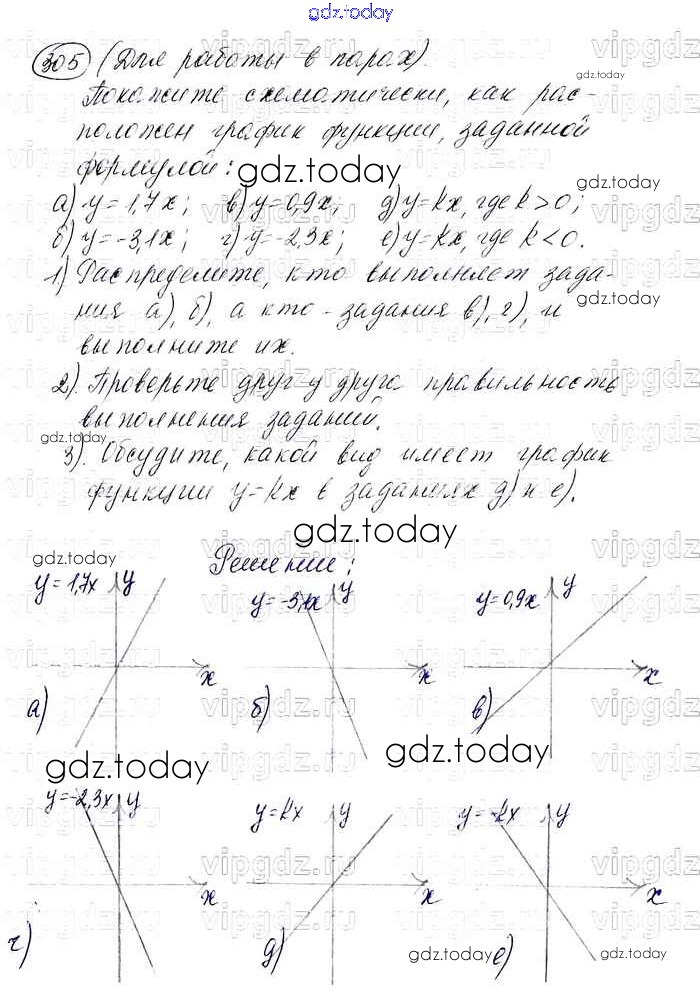 gdz.today
305 (Для работы в парах).
Покажите схематически, как рас-
положен график функции, заданной
формулой:
а) y=1,7x; в) y=0,9x; д) y=kx, где k>0;
б) y=-3,1x; г) y=-2,3x; е) y=kx, где k<0.
1) Распределите, кто выполняет зада-
ния а), б), а кто - задания в), г), и
выполните их.
2). Проверьте друг у друга правильность
выполнения заданий.
3). Обсудите, какой вид имеет график
функции y=kx в заданиях д) и е).
Решение:
y=1,7x y x а)
y=-3,1x y x б)
y=0,9x y x в)
y=-2,3x y x г)
y=kx y x д)
y=-kx y x е)
gdz.today
vipgdz.ru